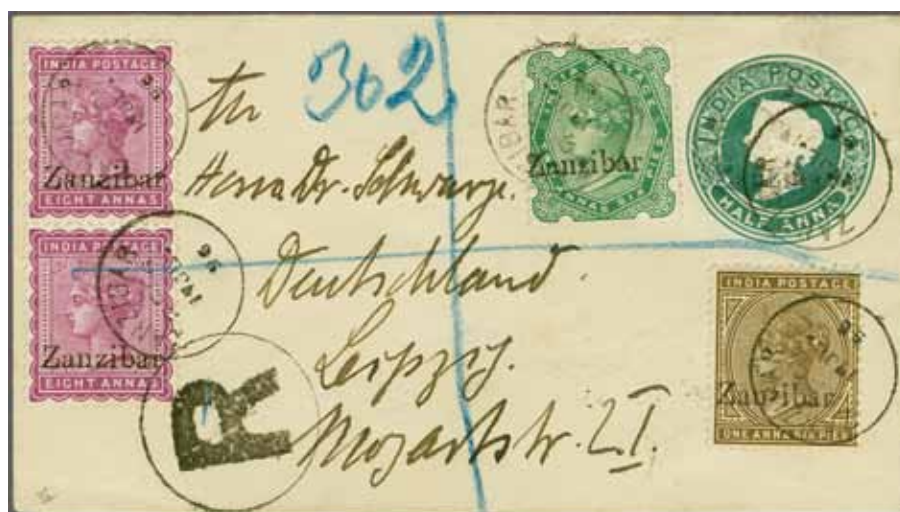 INDIA POSTAGE
Zanzibar
EIGHT ANNAS
INDIA POSTAGE
Zanzibar
EIGHT ANNAS
302
Herrn Dr. Schwarze.
Deutschland.
Leipzig.
Mozartstr. 2 I.
R
Zanzibar
ANNAS SIX PIES
INDIA POSTAGE
HALF ANNA
INDIA POSTAGE
Zanzibar
ONE ANNA SIX PIES
96
96
96